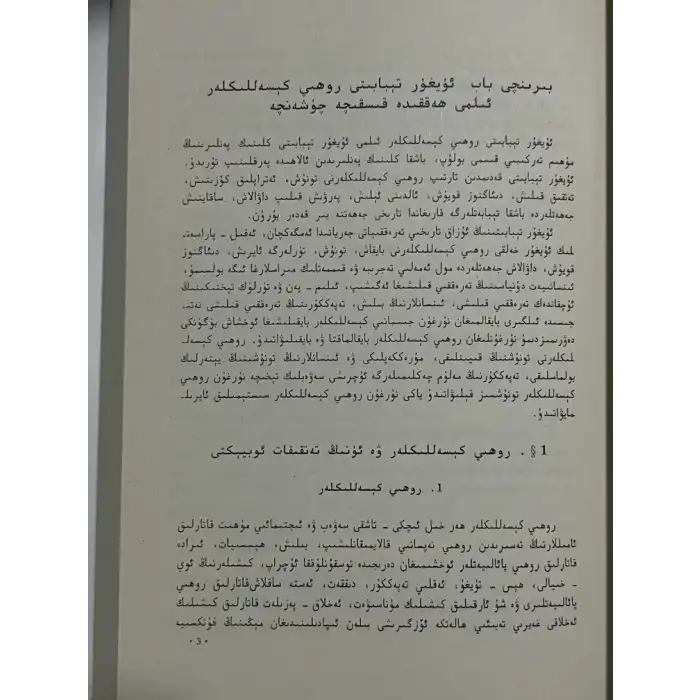 بىرىنچى باب ئۇيغۇر تېبابىتى روھىي كېسەللىكلەر
ئىلمى ھەققىدە قىسقىچە چۈشەنچە
ئۇيغۇر تېبابىتى روھىي كېسەللىكلەر ئىلمى ئۇيغۇر تېبابىتى كلىنىك پەنلىرىنىڭ
مۇھىم تەركىبىي قىسمى بولۇپ، باشقا كلىنىك پەنلىرىدىن ئالاھىدە پەرقلىنىپ تۇرىدۇ.
ئۇيغۇر تېبابىتى قەدىمدىن تارتىپ روھىي كېسەللىكلەرنى تونۇش، ئەتراپلىق كۆزىتىش،
تەتقىق قىلىش، دىئاگنوز قويۇش، ئالدىنى ئېلىش، پەرۋىش قىلىپ داۋالاش، ساقايتىش
جەھەتلەردە باشقا تېبابەتلەرگە قارىغاندا تارىخى جەھەتتە بىر قەدەر يۇرۇن.
ئۇيغۇر تېبابىتىنىڭ ئۇزاق تارىخىي تەرەققىياتى جەريانىدا ئەمگەكچان، ئەقىل - پاراسەت-
لىك ئۇيغۇر خەلقى روھىي كېسەللىكلەرنى بايقاش، تونۇش، تۈرلەرگە ئايرىش، دىئاگنوز
قويۇش، داۋالاش جەھەتلەردە مول ئەمەلىي تەجرىبە ۋە قىممەتلىك مىراسلارغا ئىگە بولسىمۇ،
ئىنسانىيەت دۇنياسىنىڭ تەرەققىي قىلىشىغا ئەگىشىپ، ئىلىم - پەن ۋە تۈرلۈك تېخنىكىنىڭ
ئۇچقاندەك تەرەققىي قىلىشى، ئىنسانلارنىڭ بىلىش، تەپەككۇرىنىڭ تەرەققىي قىلىشى نەتى-
جىسىدە ئىلگىرى بايقالمىغان نۇرغۇن جىسمانىي كېسەللىكلەر بايقىلىشىغا ئوخشاش بۈگۈنكى
دەۋرىمىزدىمۇ نۇرغۇنلىغان روھىي كېسەللىكلەر بايقالماقتا ۋە بايقىلىۋاتىدۇ. روھىي كېسەل-
لىكلەرنى تونۇشنىڭ قىيىنلىقى، مۇرەككەپلىكى ۋە ئىنسانلارنىڭ تونۇشىنىڭ يېتەرلىك
بولماسلىقى، تەپەككۇرنىڭ مەلۇم چەكلىمىلەرگە ئۇچرىشى سەۋەبلىك تېخىچە نۇرغۇن روھىي
كېسەللىكلەر تونۇشسىز قېلىۋاتىدۇ ياكى نۇرغۇن روھىي كېسەللىكلەر سىستېمىلىق ئايرىل-
مايۋاتىدۇ.
1 §. روھىي كېسەللىكلەر ۋە ئۇنىڭ تەتقىقات ئوبيېكتى
1. روھىي كېسەللىكلەر
روھىي كېسەللىكلەر ھەر خىل ئىچكى - تاشقى سەۋەب ۋە ئىجتىمائىي مۇھىت قاتارلىق
ئامىللارنىڭ تەسىرىدىن روھىي نەپسانىي قالايمىقانلىشىپ، بىلىش، ھېسسىيات، ئىرادە
قاتارلىق روھىي پائالىيەتلەر ئوخشىمىغان دەرىجىدە توسقۇنلۇققا ئۇچراپ، كىشىلەرنىڭ ئوي
- خىيالى، ھېس - تۇيغۇ، ئەقلىي تەپەككۇر، دىققەت، ئەستە ساقلاشقاتارلىق روھىي
پائالىيەتلىرى ۋە شۇ ئارقىلىق كىشىلىك مۇناسىۋەت، ئەخلاق - پەزىلەت قاتارلىق كىشىلىك
ئەخلاقى غەيرىي تەبىئىي ھالەتكە ئۆزگىرىشى بىلەن ئىپادىلىنىدىغان مېڭىنىڭ فۇنكسىيە
· 3 ·